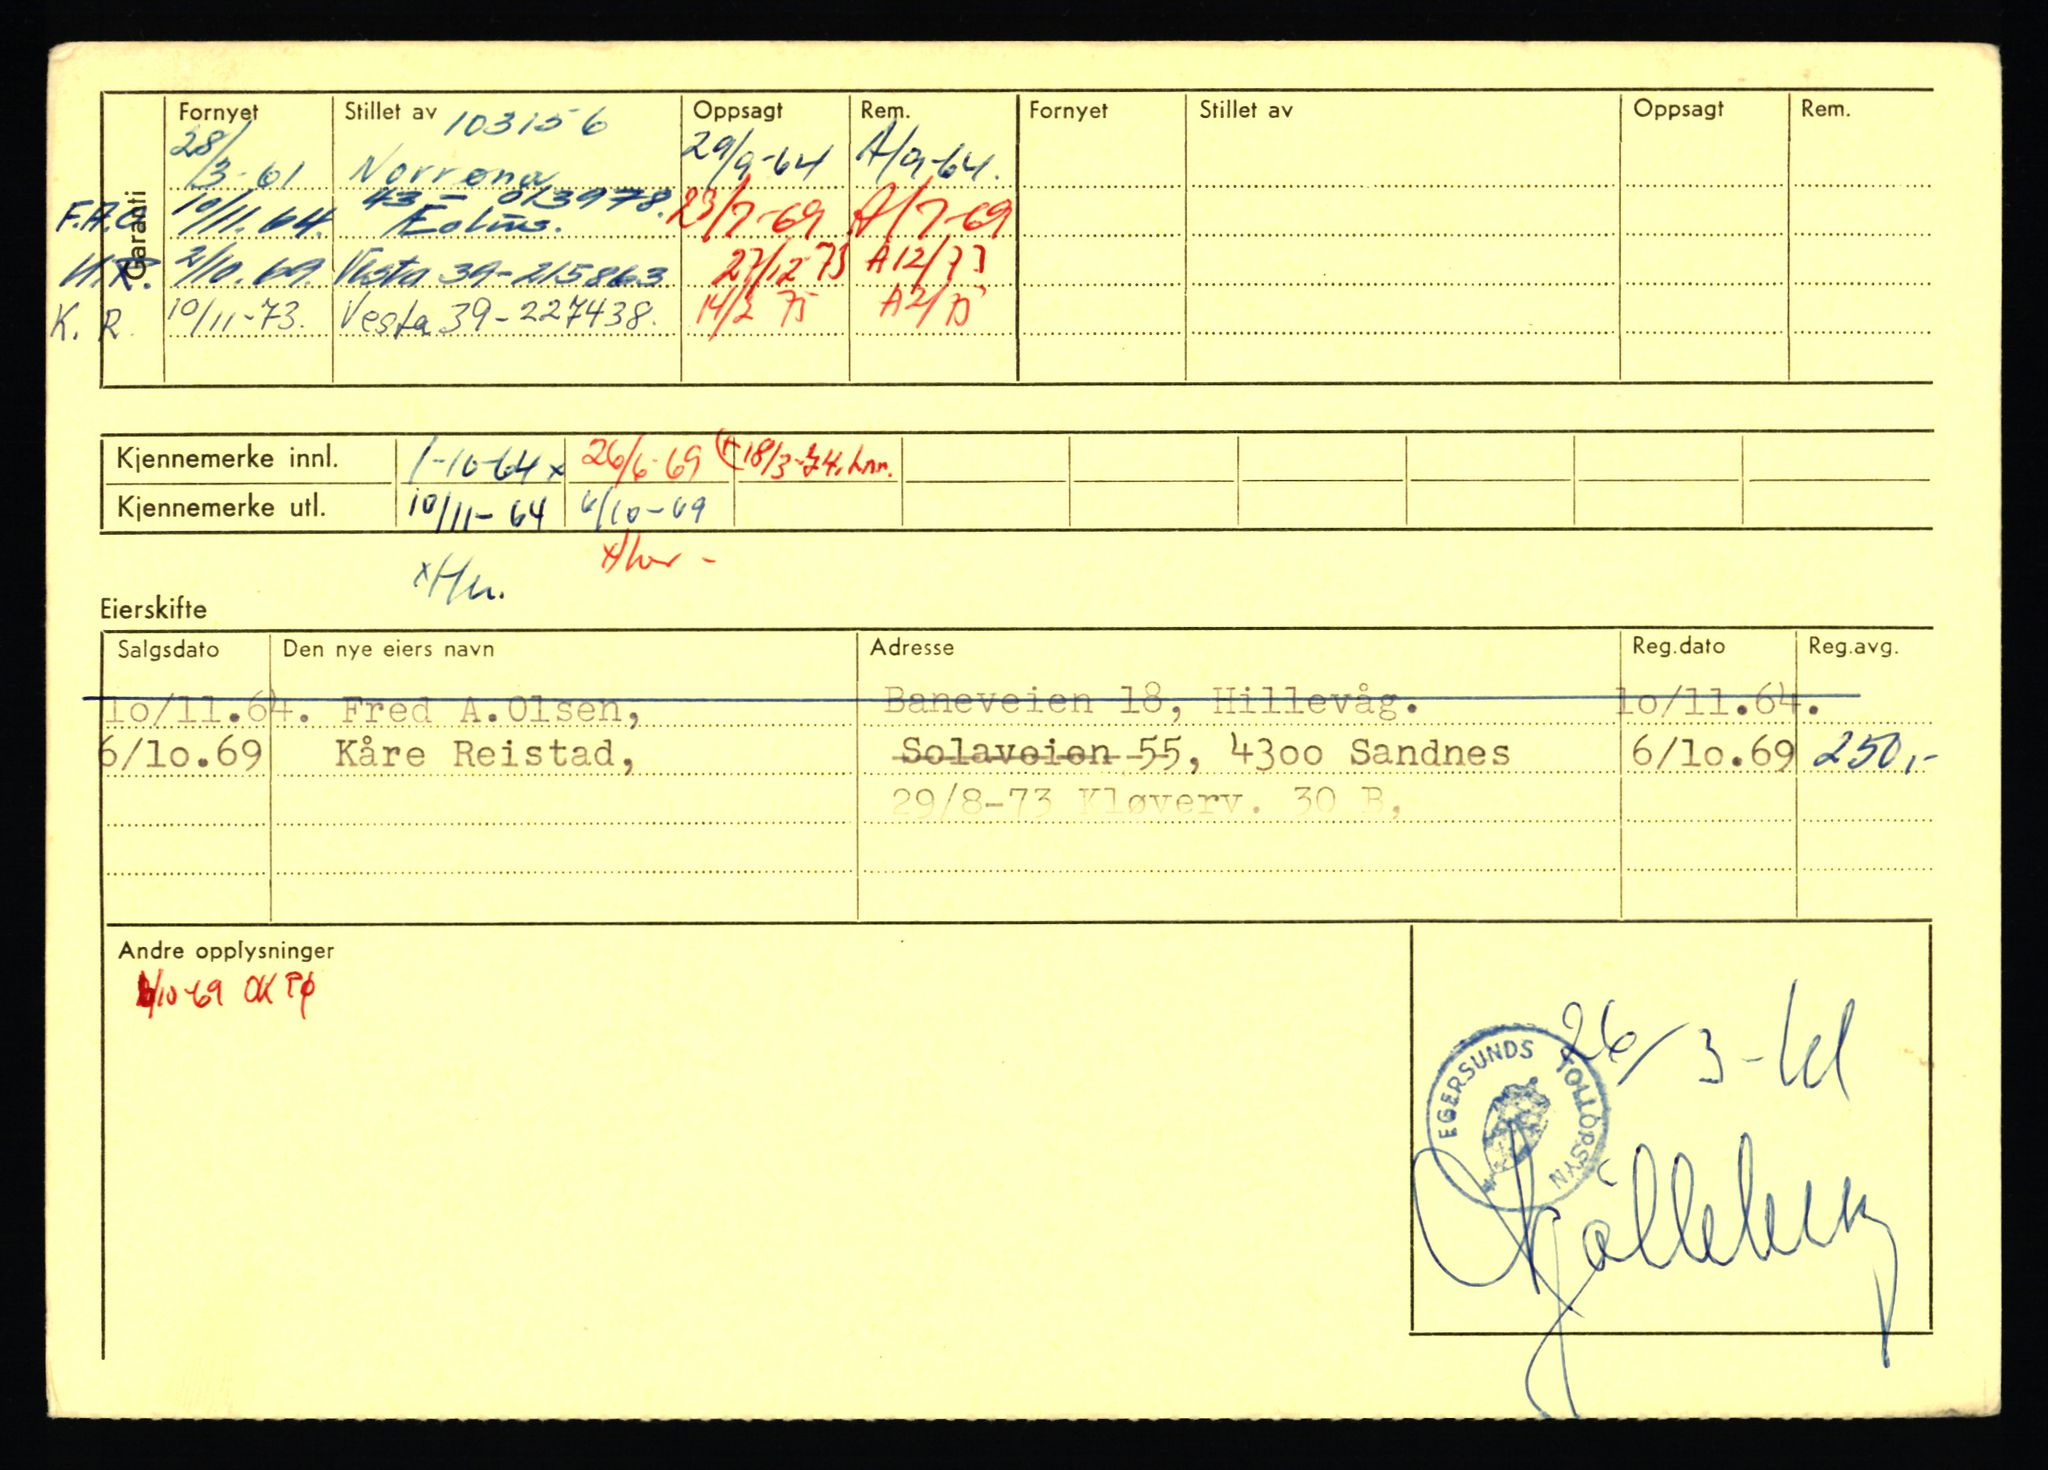 Garanti
Fornyet Stillet av 103156 Oppsagt Rem. Fornyet Stillet av Oppsagt Rem.
28/3-61 Norrøna 29/9-64 A/9-64.
F.A.O. 10/11.64. 43 - 013978. Eolus. 23/7-69 A/7-69
K.R. 2/10.69. Vesta 39-215863 27/12-73 A12/73
K. R. 10/11-73. Vesta 39-227438. 14/2 75 A2/75
Kjennemerke innl. 1-10-64 x 26/6-69 (x 18/3-74.
Kjennemerke utl. 10/11-64 6/10-69
Eierskifte
Salgsdato Den nye eiers navn Adresse Reg.dato Reg.avg.
10/11.64. Fred A.Olsen, Baneveien 18, Hillevåg. 10/11.64.
6/10.69 Kåre Reistad, Solaveien 55, 4300 Sandnes 6/10.69 250,-
29/8-73 Kløverv. 30 B,
Andre opplysninger
6/10-69 OK
26/3-61
EGERSUNDS TOLLOPPSYN